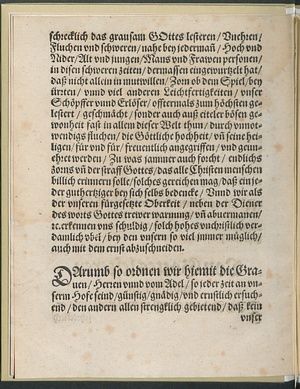 schrecklich das grausam GOttes lesteren / Vnehren /
Fluchen vnd schweren / nahe bey jederman̄ / Hoch vnd
Nider / Alt vnd jungen / Mans vnd Frawen personen /
in disen schweren zeiten / dermassen eingewurtzelt hat /
daß nicht allein in mutwillen / Zorn ob dem Spiel / bey
ürten / vnnd viel anderen Leichtfertigkeiten / vnser
Schöpffer vnnd Erlöser / offtermals zum höchsten ge-
lestert / geschmächt / sonder auch auß eiteler bösen ge-
wonheit fast in allen diser Welt thun / durch vnnot-
wendigs fluchen / die Göttliche hochheit / vn̄ seine hei-
ligen / für vnd für / freuentlich angegriffen / vnd geun-
ehret werden / Zu was jammer auch forcht / endtlichs
zorns vn̄ der straff Gottes / das alle Christen menschen
billich erinnern solle / solchs gereichen mag / daß ein je-
der guthertziger bey sich selbs bedenckt / Vnnd wir als
der vnseren fürgesetzte Oberkeit / neben der Diener
des worts Gottes trewer warnung / vn̄ abuermanen /
ꝛc. erkennen vns schuldig / solch hohes vnchristlich ver-
damlich vbel / bey den vnsern so viel jmmer müglich /
auch mit dem ernst abzuschneiden.
DArumb so ordnen wir hiemit die Gra-
uen / Herren vnnd vom Adel / so jeder zeit an vn-
serm Hofe seind / günstig / gnädig / vnd ernstlich ersuch-
end / den andern allen strengklich gebietend / daß kein
vnser